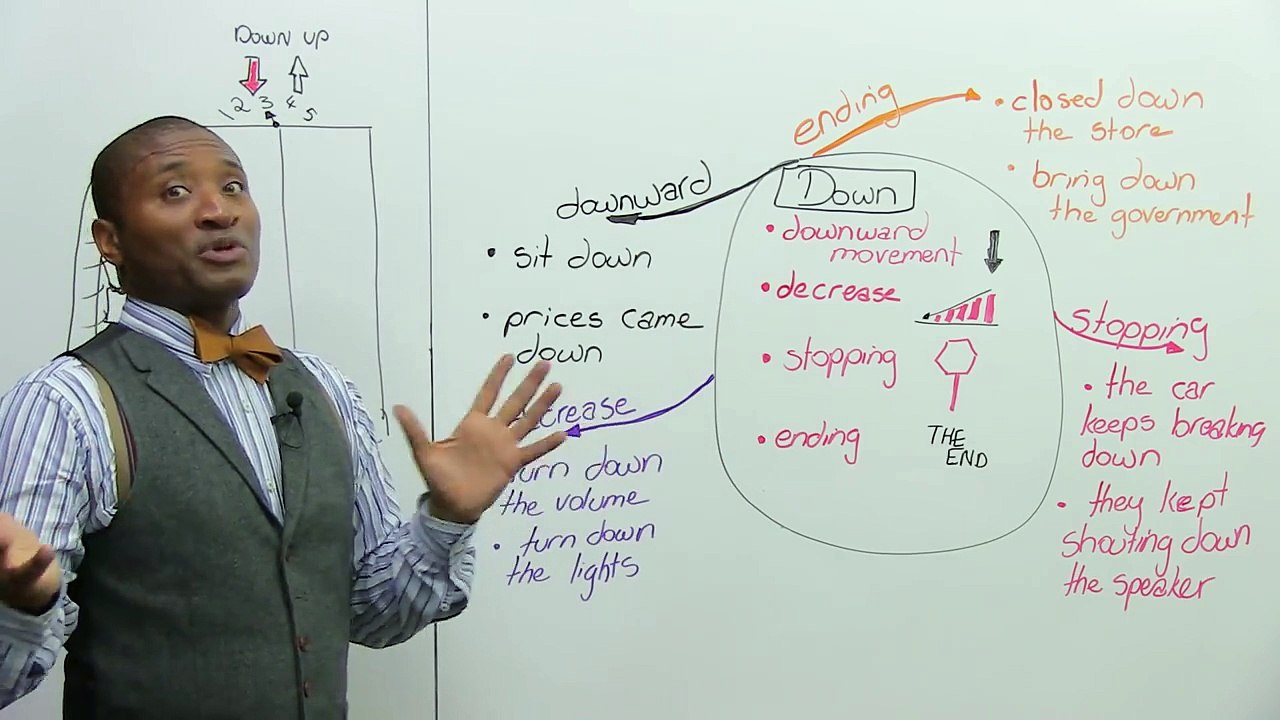 Down up
1 2 3 4 5
ending
• closed down
the store
• bring down
the government
downward
• sit down
• prices came
down
Down
• downward
movement
• decrease
• stopping
• ending
THE
END
stopping
• the car
keeps breaking
down
• they kept
shouting down
the speaker
down
the volume
• turn down
the lights